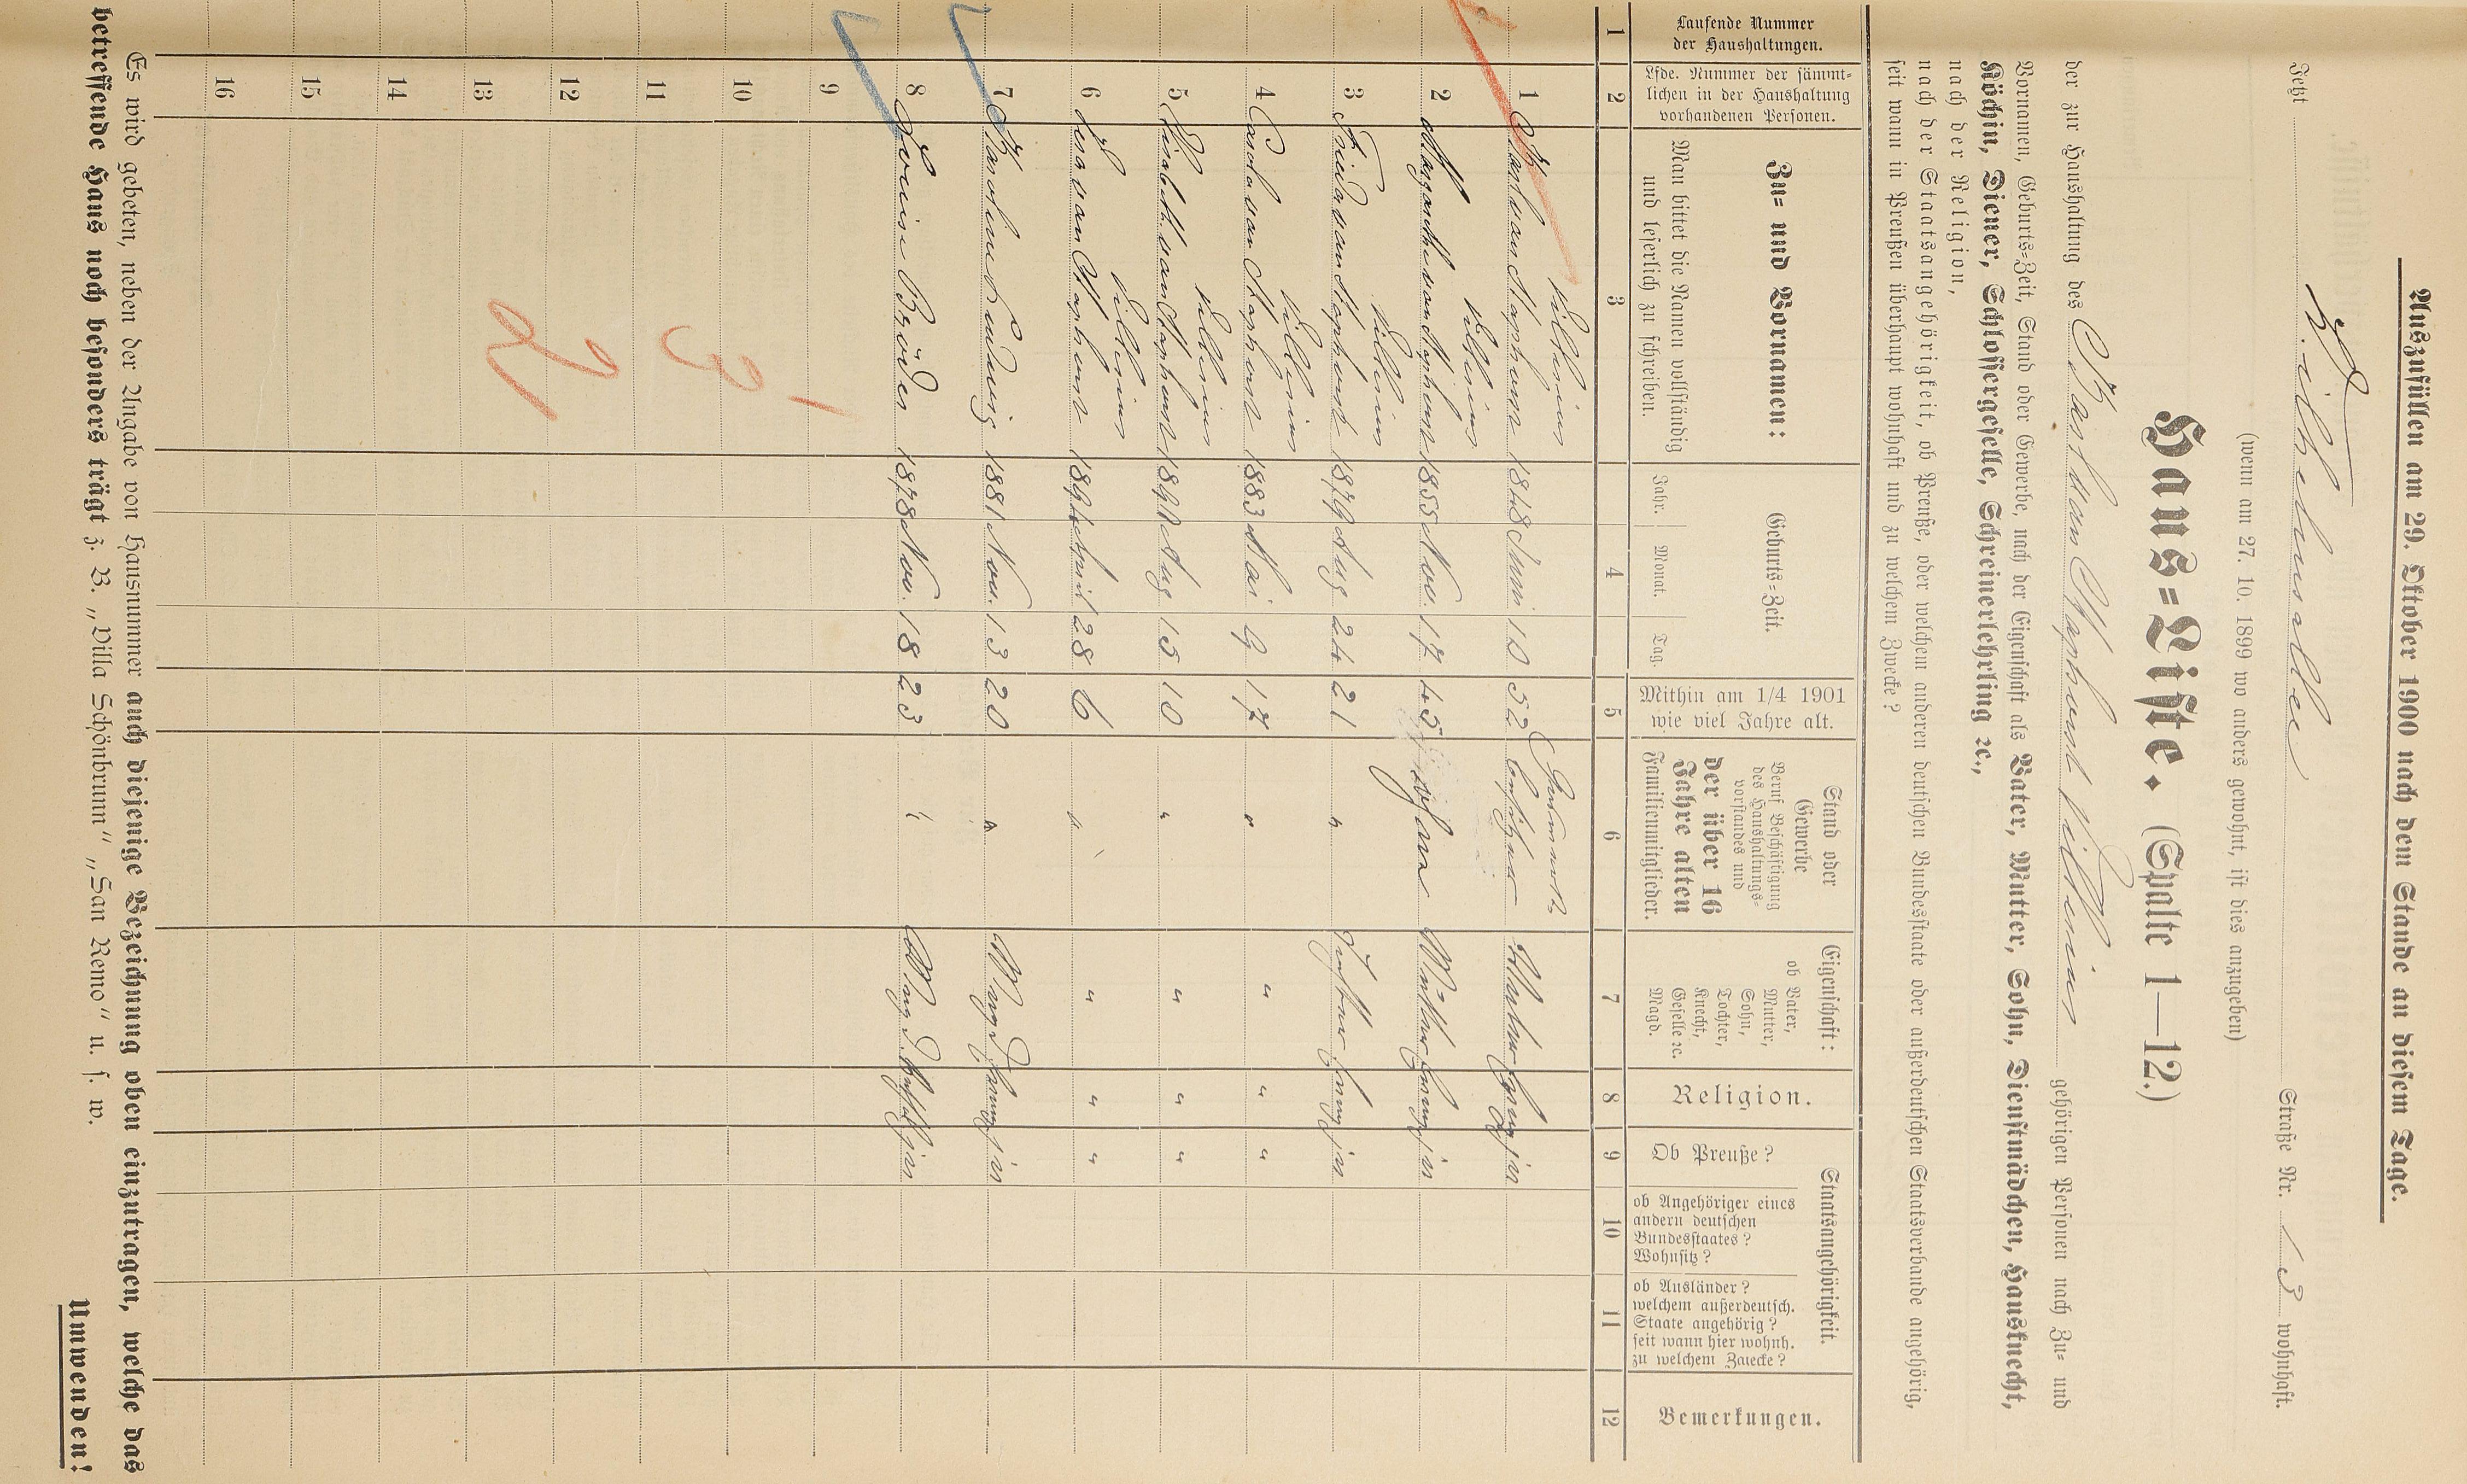 Auszufüllen am 29. Oktober 1900 nach dem Stande an diesem Tage.
Jetzt Wilhelmsallee Straße Nr. 13 wohnhaft.
(wenn am 27. 10. 1899 wo anders gewohnt, ist dies anzugeben)
Haus=Liste. (Spalte 1—12.)
der zur Haushaltung des Karl van Vultejus gehörigen Personen nach Zu= und
Vornamen, Geburts=Zeit, Stand oder Gewerbe, nach der Eigenschaft als Vater, Mutter, Sohn, Dienstmädchen, Hausknecht,
Köchin, Diener, Schlossergeselle, Schreinerlehrling ꝛc.,
nach der Religion,
nach der Staatsangehörigkeit, ob Preuße, oder welchem anderen deutschen Bundesstaate oder außerdeutschen Staatsverbande angehörig,
seit wann in Preußen überhaupt wohnhaft und zu welchem Zwecke?
Laufende Nummer der Haushaltungen.
Lfde. Nummer der sämmt-
lichen in der Haushaltung
vorhandenen Personen.
Zu= und Vornamen:
Man bittet die Namen vollständig
und leserlich zu schreiben.
Geburts=Zeit.
Jahr. Monat. Tag.
Mithin am 1/4 1901
wie viel Jahre alt.
Stand oder
Gewerbe
Beruf Beschäftigung
des Haushaltungs-
vorstandes und
der über 16
Jahre alten
Familienmitglieder.
Eigenschaft:
ob Vater,
Mutter,
Sohn,
Tochter,
Knecht,
Geselle ꝛc.
Magd.
Religion.
Staatsangehörigkeit.
Ob Preuße?
ob Angehöriger eines
andern deutschen
Bundesstaates?
Wohnsitz?
ob Ausländer?
welchem außerdeutsch.
Staate angehörig?
seit wann hier wohnh.
zu welchem Zwecke?
Bemerkungen.
1 2 3 4 5 6 7 8 9 10 11 12
1 Karl van 1848 Juni 10 52
2 Margarethe van 1855 Nov. 17 45 ja
3 Frieda van 1879 Aug 24 21 " ja
4 Carola van 1883 Mai 9 17 " " " "
5 Elisabeth van 1890 Aug 15 10 " " " "
6 van 1894 April 28 6 " " " "
7 Karoline Ludwig 1881 Nov. 13 20 " Magd ja
8 Louise Bröder 1878 Nov. 18 23 " Magd ja
9
10
11
12
13
14
15
16
3
2
Es wird gebeten, neben der Angabe von Hausnummer auch diejenige Bezeichnung oben einzutragen, welche das
betreffende Haus noch besonders trägt z. B. „Villa Schönbrunn“ „San Remo“ u. s. w.
Umwenden!